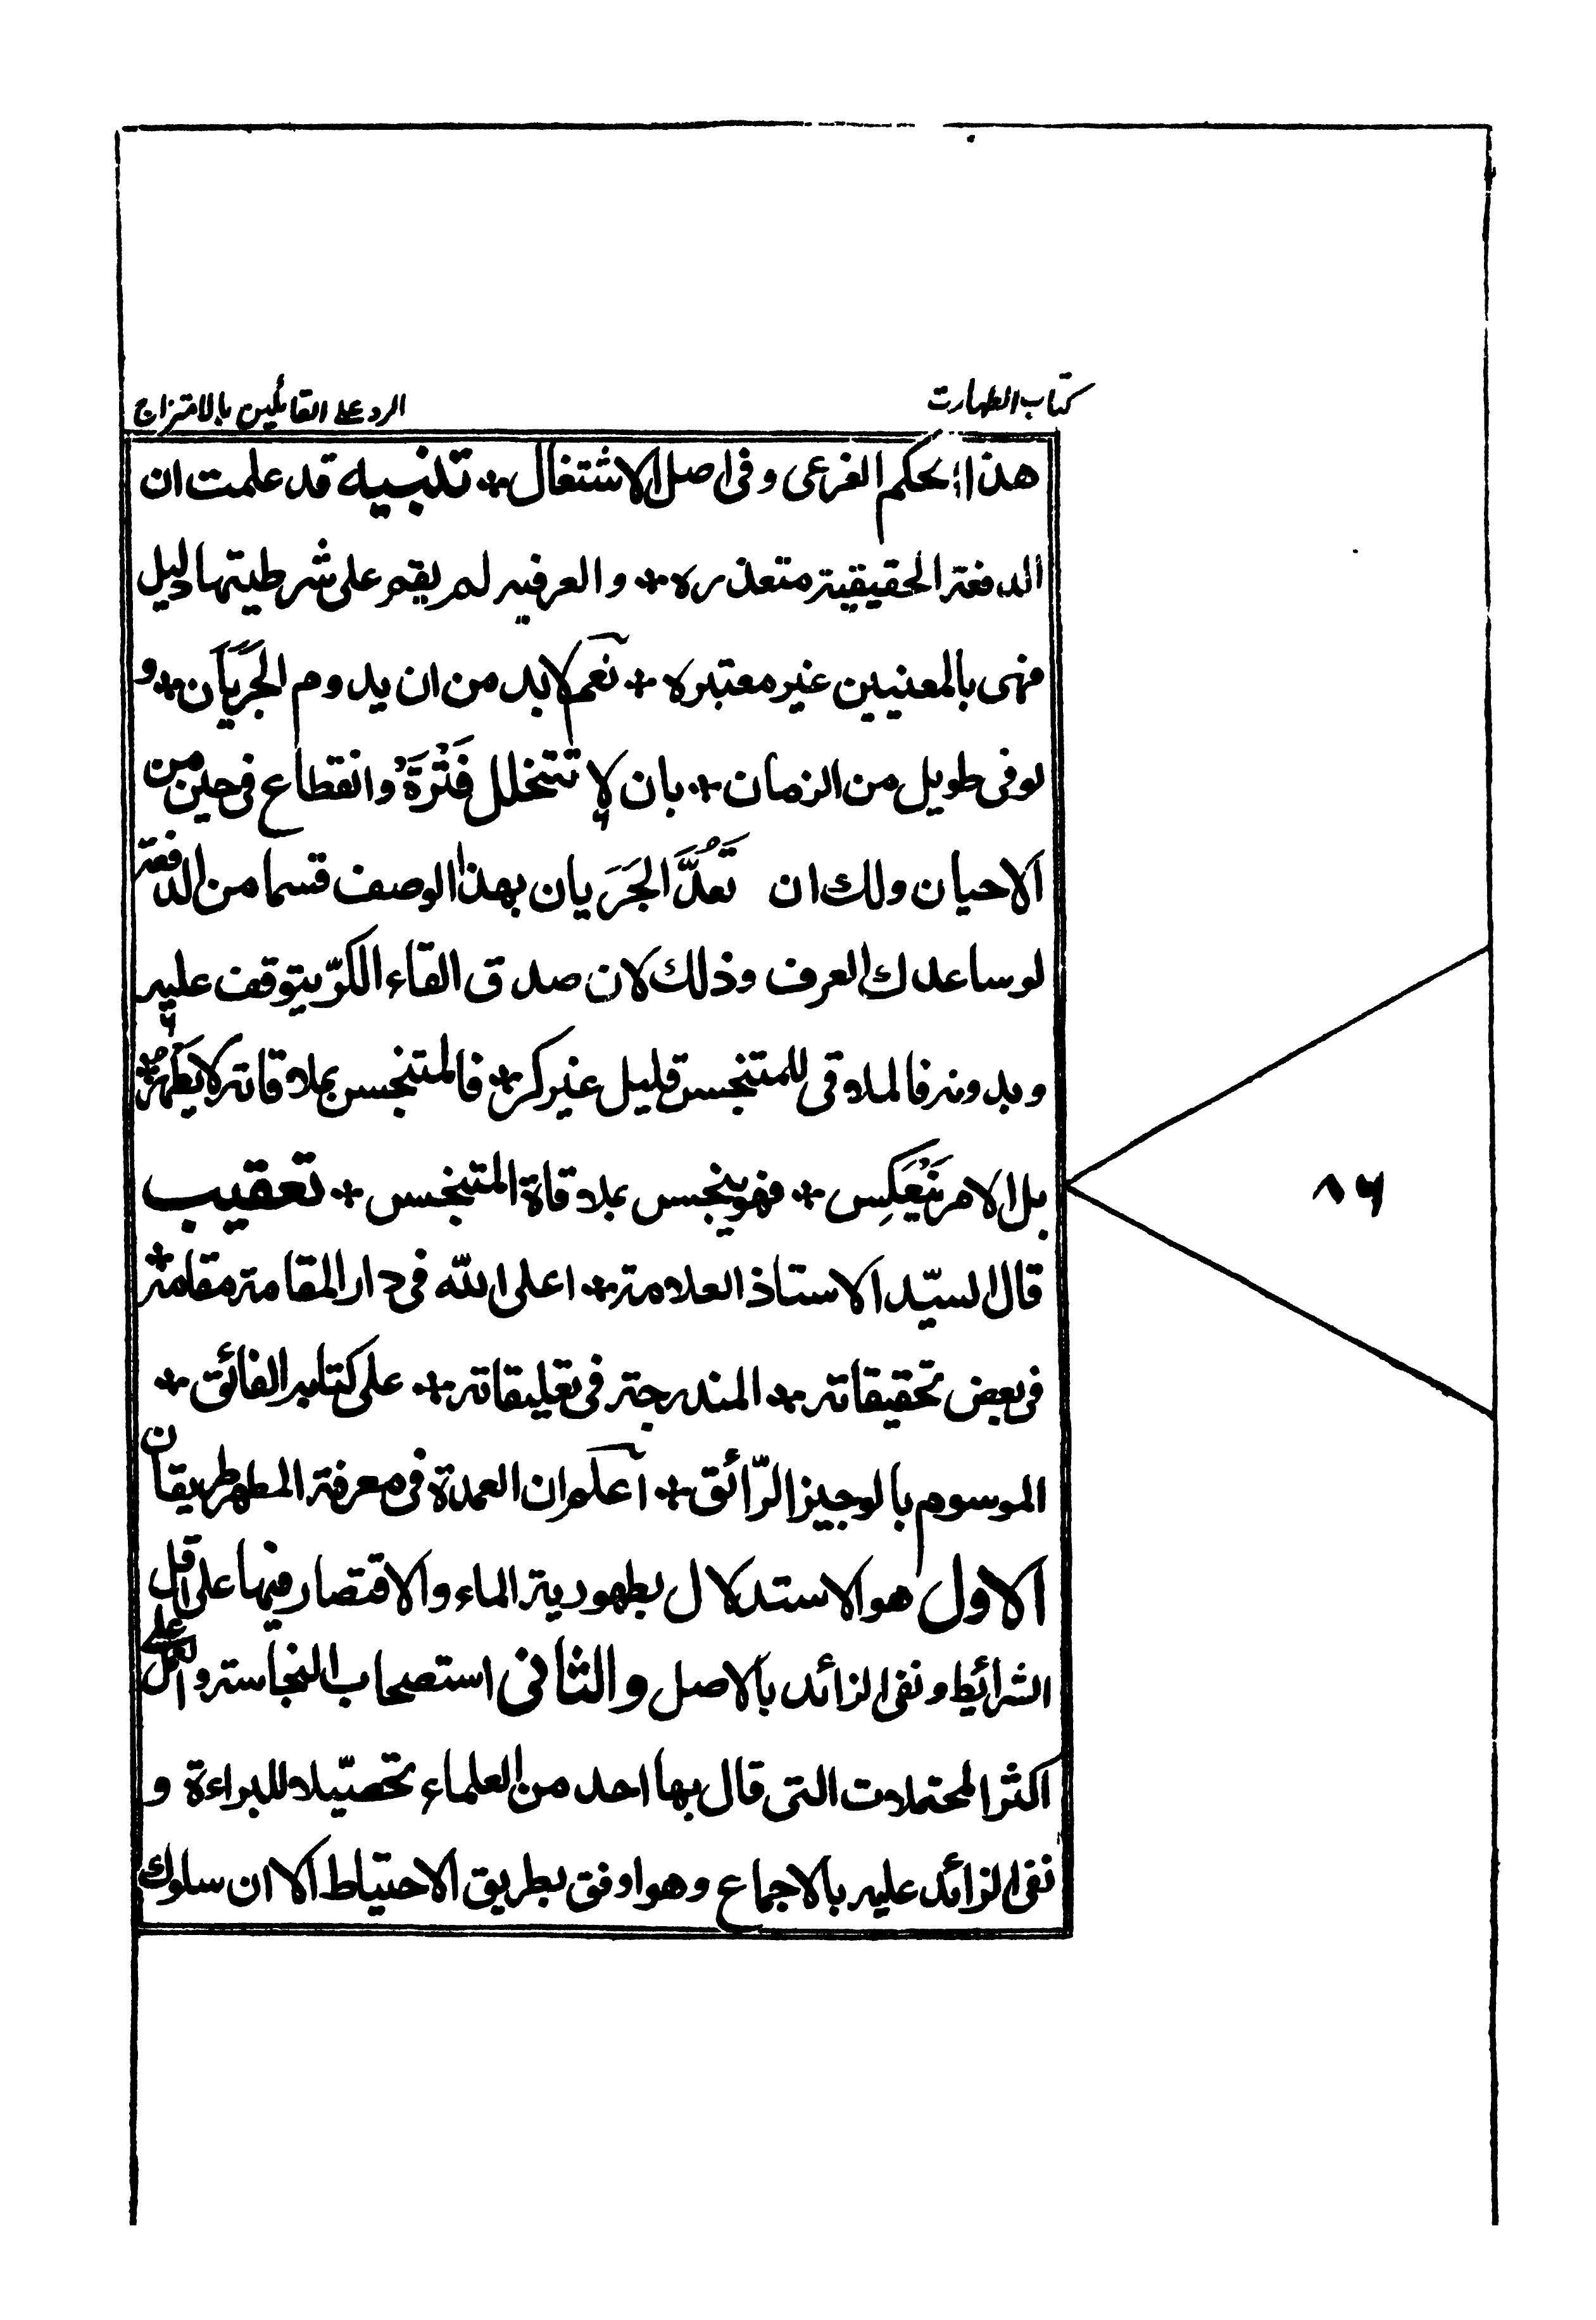 كتاب الطهارت
الرد على القائلين بالامتزاج
هذا الحكم الفرعى وفى اصل الاشتغال * تنبيه قد علمت ان
الدفعة الحقيقية متعذره * والعرفيه لم يقم على شرطيتها دليل
فهى بالمعنيين غير معتبره * نعم لابد من ان يدوم الجَرَيَان * و
لو فى طويل من الزمان * بان لا تتخلل فَتْرَةٌ وانقطاع فى حين من
الاحيان ولك ان تَعُدَّ الجَرَيان بهذا الوصف قسما من الدفعة
لو ساعدك العرف وذلك لان صدق القاء الكرّ يتوقف عليه
وبدونه فالملاقى للمتنجس قليل غير كر * فالمتنجس بملاقاته لا يَطْهُر *
بل الامر يَنْعَكِس * فهو ينجس بملاقاة المتنجس * تعقيب
قال السيّد الاستاذ العلامة * اعلى الله فى دار المقامة مقامه *
فى بعض تحقيقاته * المندرجة فى تعليقاته * على كتابه الفائق *
الموسوم بالوجيز الرّائق * اعلم ان العمدة فى معرفة المطهر طريقان
الاول هو الاستدلال بطهورية الماء والاقتصار فيها على اقل
الشرائط ونفى الزائد بالاصل والثانى استصحاب النجاسة والعمل على
اكثر المحتملات التى قال بها احد من العلماء تحصيلا للبراءة و
نفى الزائد عليه بالاجماع وهو اوفق بطريق الاحتياط الا ان سلوك
٨٦